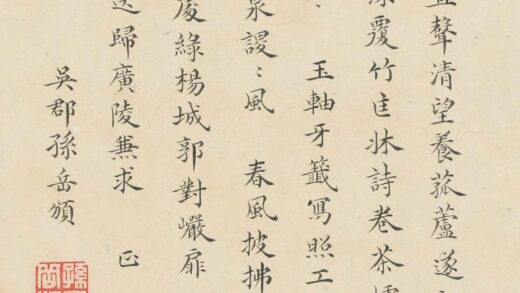 聲清望養菰蘆遂
覆竹匡牀詩卷茶
玉軸牙籤寫照工
泉謖〻風 春風披拂
處綠楊城郭對巖扉
送歸廣陵兼求 正
吳郡孫岳頒